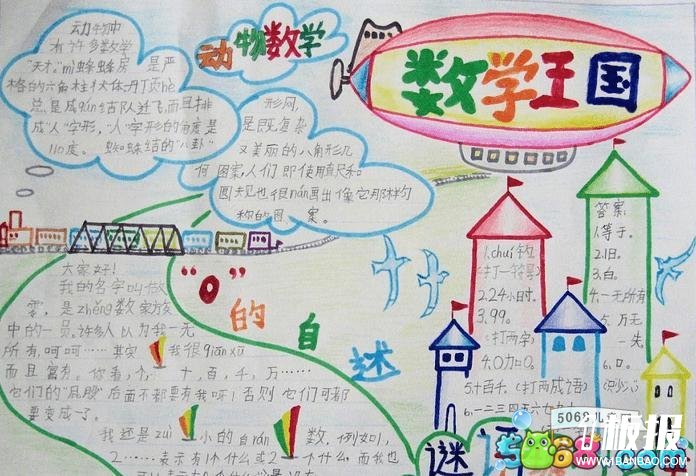 数学王国
动物数学
动物中
有许多数学
"天才。"mì蜂蜂房 是严
格的六角柱状体,丹顶hè
总是成qún结队迁飞,而且排
成"人"字形,"人"字形的角度是
110度。 蜘蛛结的"八卦"
形网,
是既复杂
又美丽的八角形几
何图案,人们即使用直尺和
圆规也很nán画出像它那样匀
称的图案。
"0"的自述
大家好!
我的名字叫做
零,是zhěng数家族
中的一员。许多人以为我一无
所有,呵呵……其实 我很qiān xū
而且富有。你看,个、十、百、千、万……
它们的"屁股"后面不都要有我呀!否则它们可都
要变成了。
我还是zuì小的自rán数,例如1,
2……表示有1个什么或2个什么,而我也
1.chuí钓。
(打一符号)
2.24小时。
3.99。
(打两字)
4.0加0。
5.十百千。(打两成语)
6.一二三四五六七九十
答案:
1.等于。
2.旧。
3.白。
4.一无所有
5.万无
一失
6.0。
谜
5068儿童网
5068.com
板报
WWW.BANBAO.COM